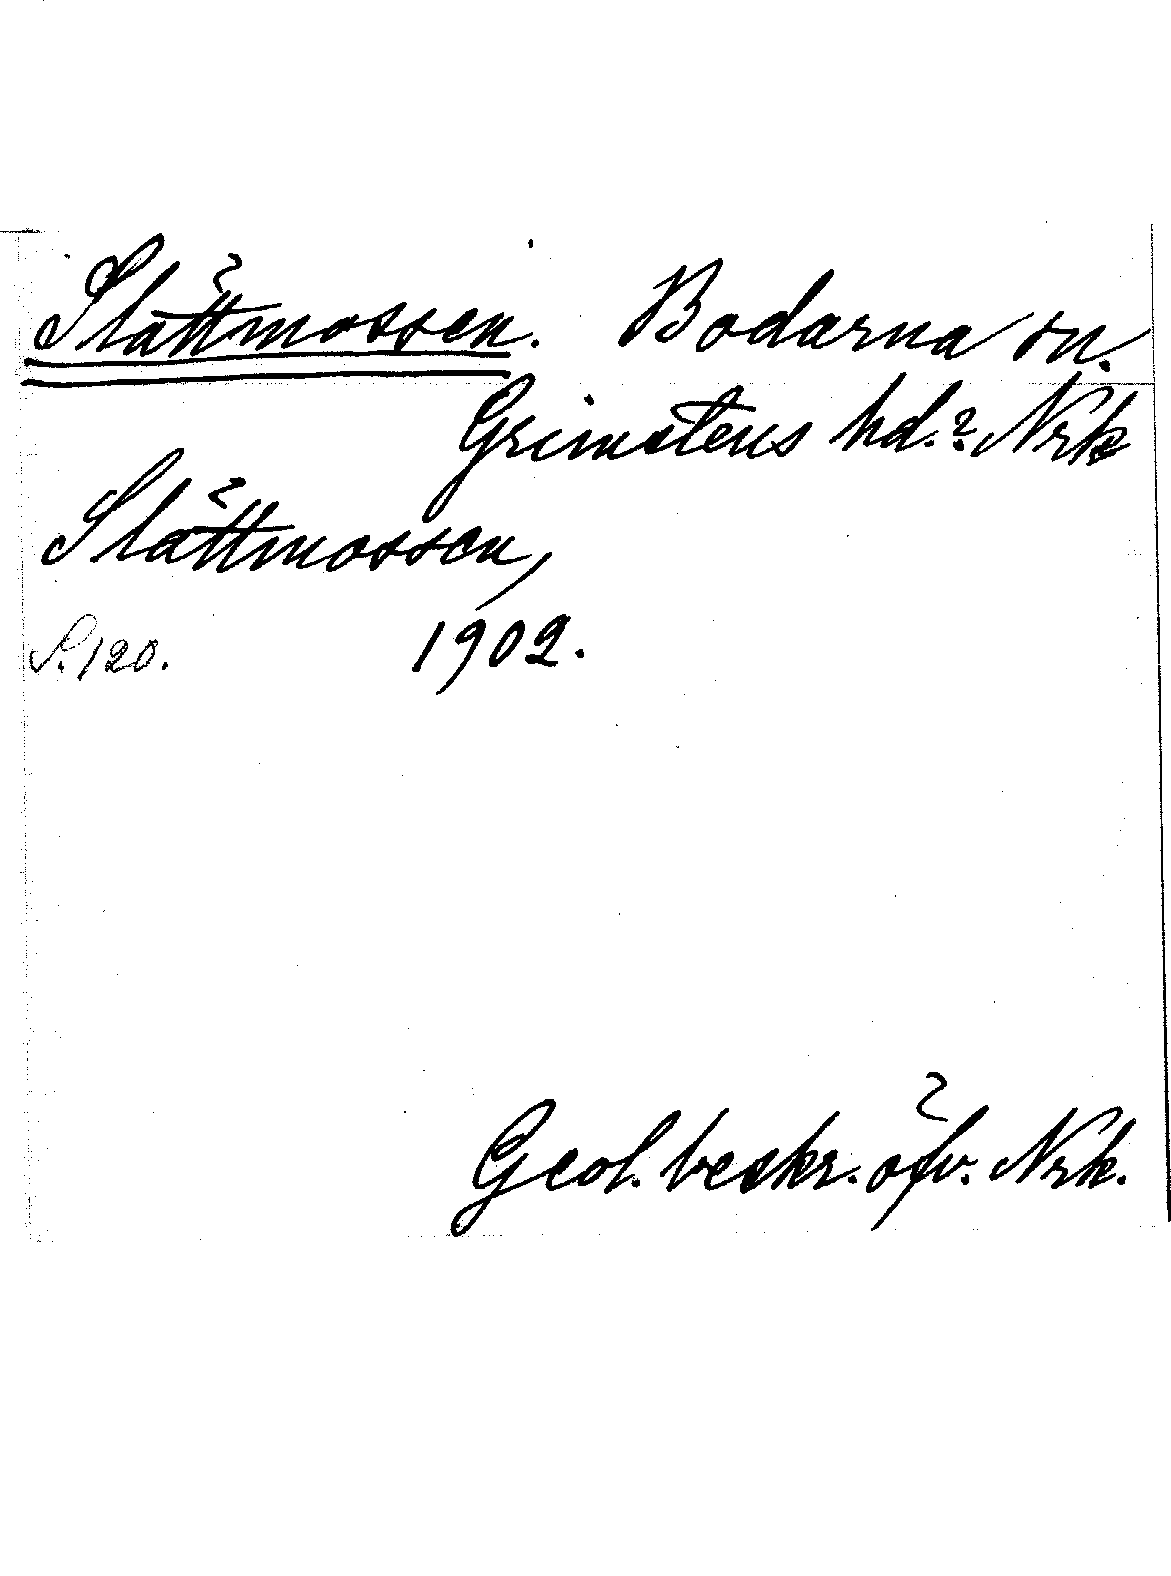 Slättmossen. Bodarna sn.
Grimstens hd.? Nrk
Slättmossen,
S. 120. 1902.
Geol. beskr. öfv. Nrk.